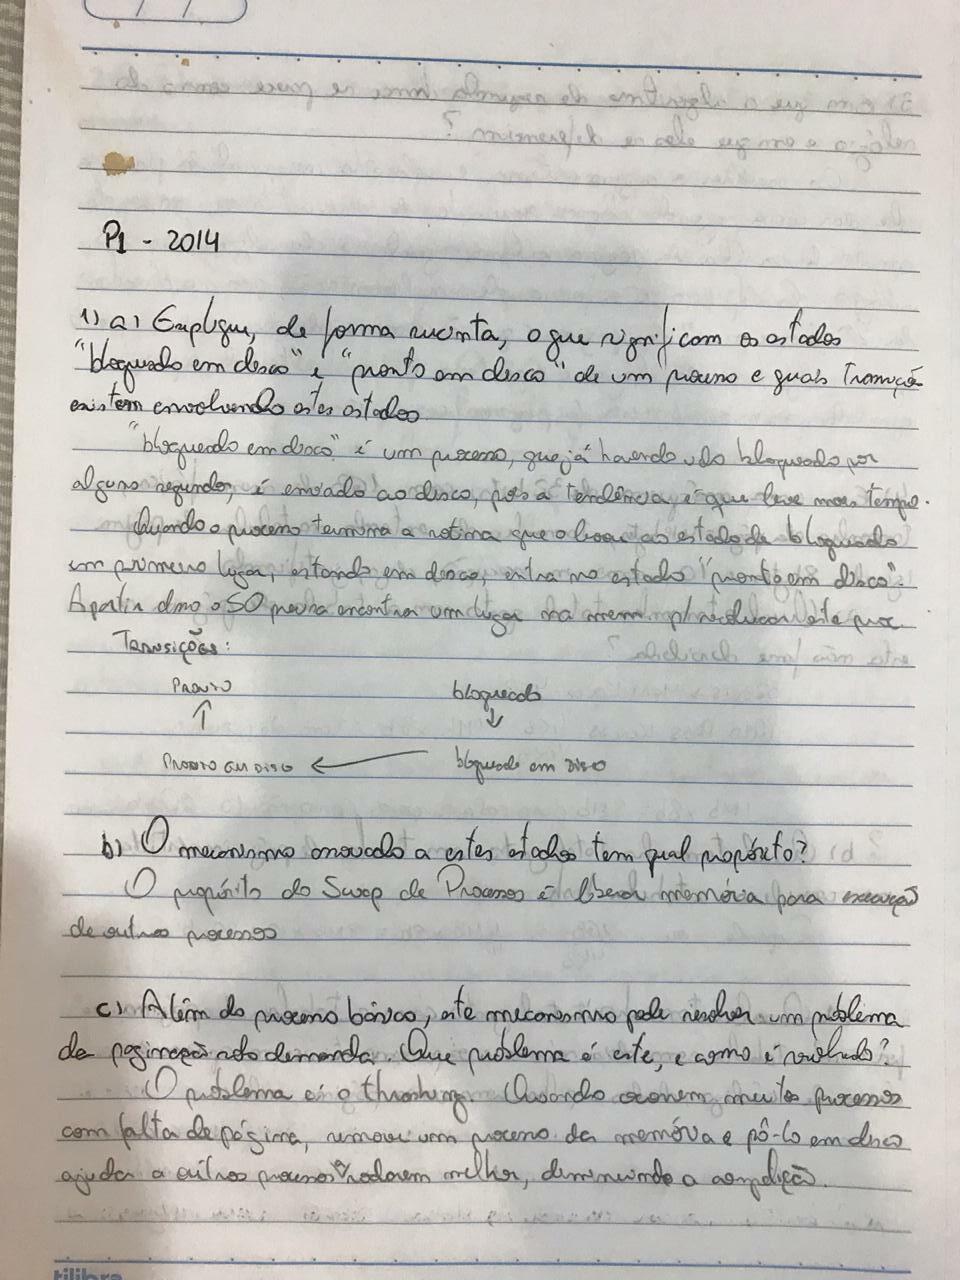 P1 - 2014
1) a) Explique, de forma sucinta, o que significam os estados
"bloqueado em disco" e "pronto em disco" de um processo e quais transições
existem envolvendo estes estados
"bloqueado em disco" é um processo, que já havendo sido bloqueado por
alguns segundos, é enviado ao disco, pois a tendência é que leve mais tempo.
Quando o processo termina a rotina que o levou ao estado de bloqueado
em primeiro lugar, estando em disco, entra no estado "pronto em disco".
A partir disso o SO precisa encontrar um lugar na mem p/ este
Transições:
Pronto bloqueado
↑ ↓
Pronto em disco ← bloqueado em disco
b) O mecanismo associado a estes estados tem qual propósito?
O propósito do Swap de Processos é liberar memória para execução
de outros processos
c) Além do processo básico, este mecanismo pode resolver um problema
da paginação sob demanda. Que problema é este, e como é resolvido?
O problema é o thrashing. Quando ocorrem muitos processos
com falta de página, remover um processo da memória e pô-lo em disco
ajuda a outros processos rodarem melhor, diminuindo a competição.
tilibra